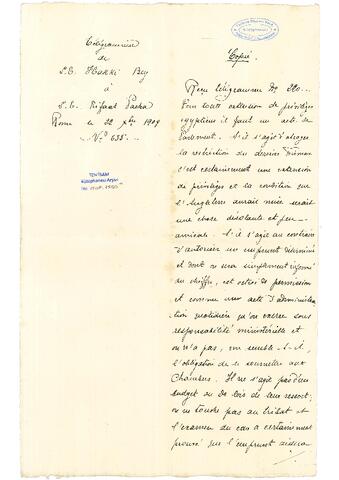 Télégramme
de
S.E. Hakki Bey
à
S.E. Rifaat Pacha
Rome le 22 Xbre 1909
No 635.
Copie
Reçu télégramme No 220.
Pour toute extension de privilèges
égyptiens il faut un acte du
Parlement. S'il s'agit d'abroger
la restriction du dernier firman
c'est certainement une extension
de privilèges et la condition sur
l'Angleterre aurait mise serait
une chose désolante et peu
amicale. S'il s'agit au contraire
d'autoriser un emprunt déterminé
et dont on sera simplement informé
du chiffre, cet octroi de permission
est comme un acte d'administra-
tion quotidien qu'on exerce sous
responsabilité ministérielle et
on n'a pas, me semble-t-il,
l'obligation de le soumettre aux
Chambres. Il ne s'agit pas d'un
budget ou de lois de leur ressort;
on ne touche pas au tribut et
l'examen du cas a certainement
prouvé que l'emprunt